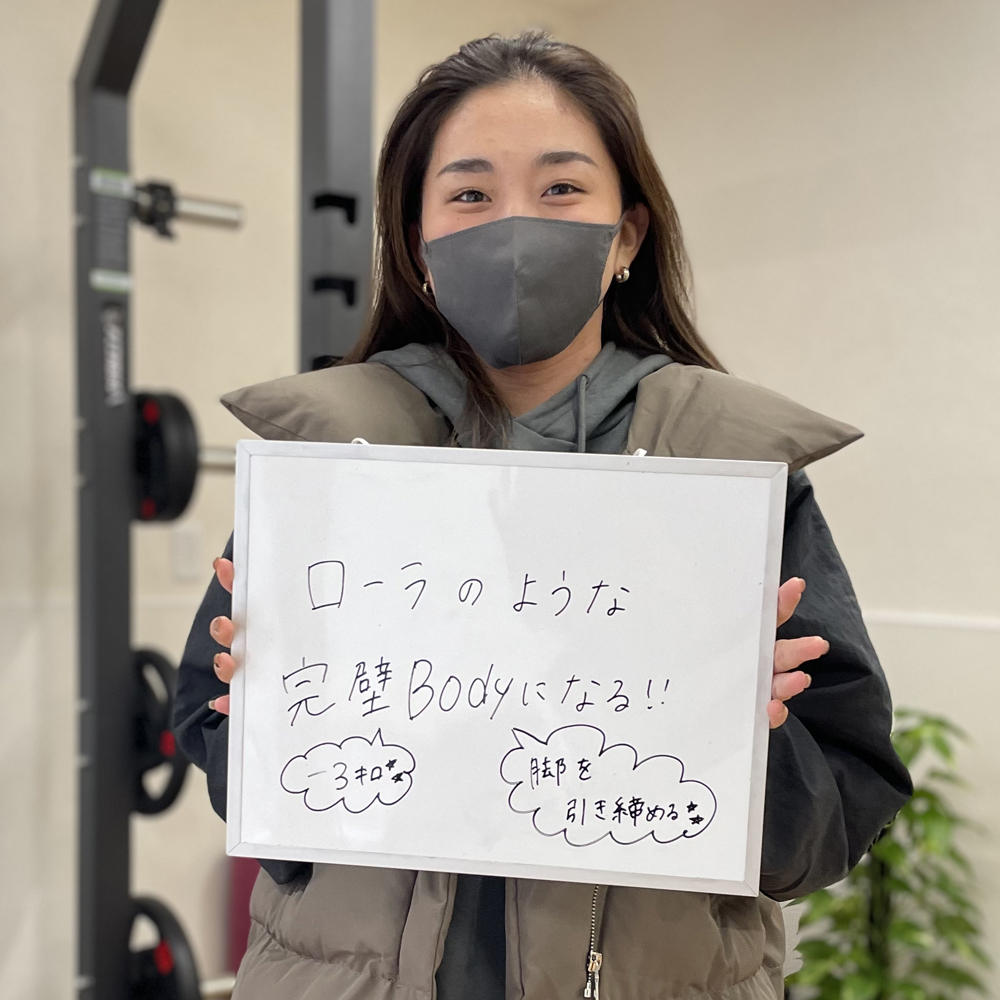 ローラのような
完璧Bodyになる!!
-3キロ★★
脚を
引き締める★★